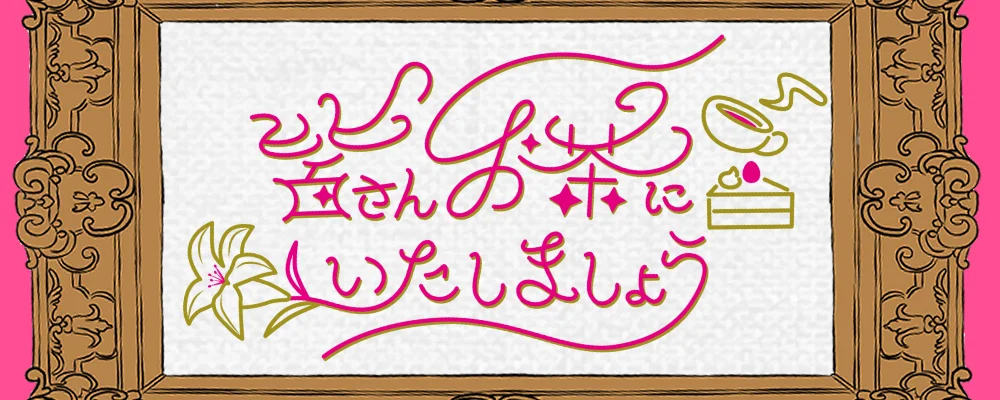 皆さんお茶に
いたしましょう